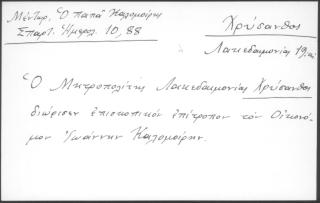 Μέντωρ, Ὁ παπᾶ Καλομοίρης
Σπαρτ. Ἡμερολ. 10, 88
Χρύσανθος
Λακεδαιμονίας 19
Ὁ Μητροπολίτης Λακεδαιμονίας Χρύσανθος
διώρισεν ἐπισκοπικὸν ἐπίτροπον τὸν Οἰκονό-
μον Ἰωάννην Καλομοίρην.